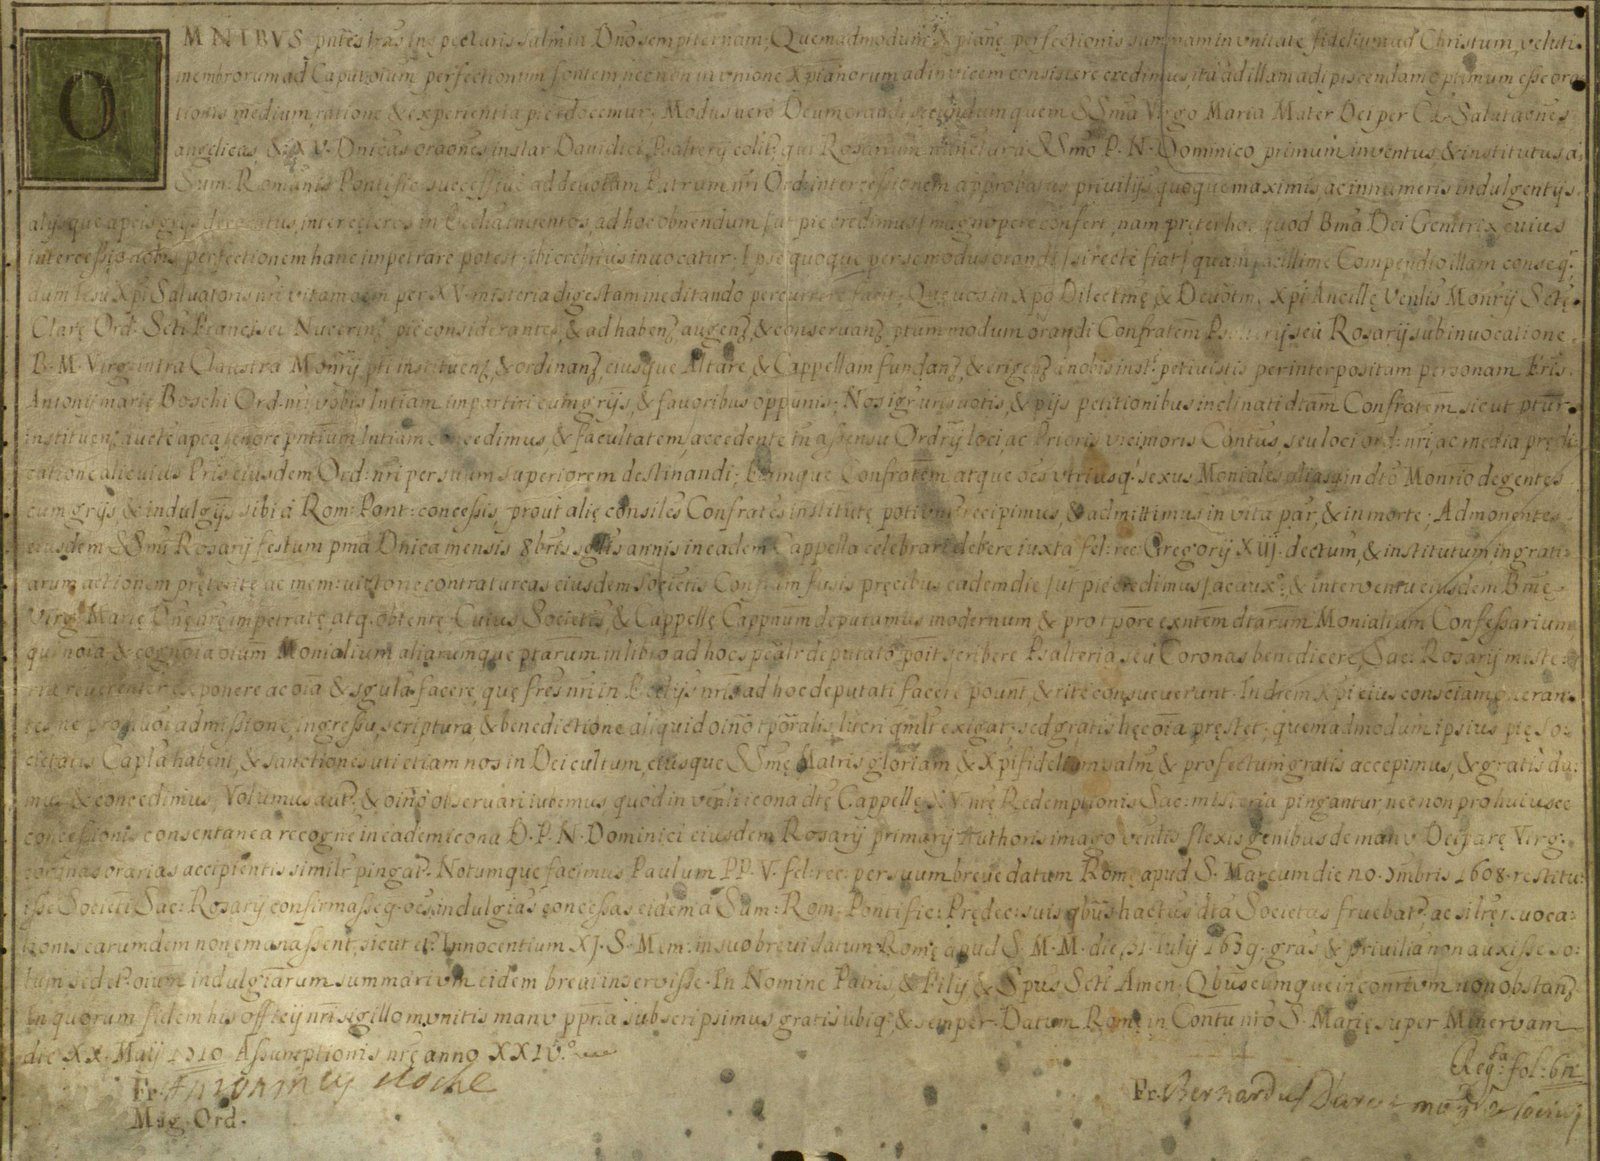 OMNIBVS pntes lras inspecturis salm in Dno sempiternam. Quemadmodum Xpianę perfectionis summam in vnitate fidelium ad Christum, veluti
membrorum ad Caput totium perfectionum fontem, necnon in vnione Xpianorum ad invicem consistere credimus, ita ad illam adipiscendam optimum esse ora
tionis medium, ratione & experientia pie edocemur. Modus vero Deum orandi secundum quem SSma Virgo Maria Mater Dei per CL Salutaones
angelicas, & XV. Dnicas oraones instar Davidici Psalterij colit.r qui Rosarium nuncupatur a SSmo P. N. Dominico primum inventus & institutus a
Sum: Romanis Pontific. successive ad devotam Patrum nri Ord: intercessionem approbatus privilijs quoque maximis, ac innumeris indulgentijs
alijsque apcis grijs decoratus, inter cęteros in Ecclia inventos, ad hoc obnendum /ut pie credimus/ magnopere confert, nam pręter hoc quod Bma Dei Genitrix cuius
intercessio nobis perfectionem hanc impetrare potest ibi crebrius invocatur. Ipse quoque per se modus orandi /si recte fiat/ quam facillime Compendio illam conseq.r
dum Iesu Xpi Salvatoris nri vitam oem per XV. misteria digestam meditando percurrere facit. Quę vos in Xpo Dilectmę & Devotm. Xpi Ancillę Venlis Monrij Sctę
Clarę Ord. Scti Francisci Nucerin. pie considerantes, & ad habenz, augenz, & conservanz ptum modum orandi Confratem Psalterij seu Rosarij sub invocatione
B. M. Virg. intra Claustra Monrij pti instituenz, & ordinanz, eiusque Altare, & Cappellam fundanz, & erigenz a nobis inst.r petivistis per interpositam personam Fris
Antonij marię Boschi Ord. mi vobis lntiam impartiri cum grijs, & favoribus oppunis. Nos igr vris votis, & pijs petitionibus inclinati dtam Confratem sicut ptur
instituen. aucte apca tenore pntium lntiam concedimus, & facultatem, accedente tn assensu Ordrij loci, ac Prioris vicinioris Contus, seu loci ord: nri, ac media prędi
catione alicuius Pris eiusdem Ord: nri per suum superiorem destinandi; Eamque Confratem atque oes vtriusq. sexus Moniales aliasq in dto Monrio degentes
cum grijs, & indulgijs sibi a Rom: Pont: concessis, prout alię consiles Confrates institutę potiunt recipimus, & admittimus in vita par. & in morte. Admonentes
eiusdem SSmi Rosarij festum pma Dnica mensis 8bris sglis annis in eadem Cappella celebrari debere iuxta fel: rec: Gregorij XIIJ. dectum, & institutum, in grati
arum actionem pręterite ac mem: victorię contra turcas eiusdem Societis Confrum fusis pręcibus eadem die /ut pie credimus/ ac aux.o & interventu eiusdem Bmę
Virg. Marię Dnę nrę impetratę, atq. obtentę. Cuius Societis, & Cappellę Cappnum deputamus modernum & pro tpore exntem dtarum Monialium Confessarium
qui noia & cognoia oium Monialium aliarumque ptarum in libro ad hoc spealr deputato poit scribere Psalteria seu Coronas benedicere, Sac: Rosarij miste
ria reverenter exponere ac oia & sgula facere, quę fres nri in Ecclijs nris ad hoc deputati facere pount, & rite consueverunt. In drem Xpi eius consciam oneran
tes ne pro huioi admissione, ingressu, scriptura, & benedictione aliquid oino tporalis lucri qmlt exigat. sed gratis hęc oia pręstet. quemadmodum ipsius pię So
cietatis Capla habent, & sanctiones uti etiam nos in Dei cultum, eiusque SSmę Matris gloriam & Xpifidelium salm & profectum gratis accepimus, & gratis da
mus & concedimus. Volumus aut. & oino observari iubemus, quod in venli icona dtę Cappellę XV nrę Redemptionis Sac: misteria pingantur, necnon pro huiusce
concessionis consentanea recogne in eadem icona D. P. N. Dominici eiusdem Rosarij primarij Authoris imago venlis flexis genibus de manu Deiparę Virg.
coronas orarias accipientis similr pingat.r Notumque facimus Paulum PP. V. fel: rec: per suum breve datum Romę apud S. Marcum die no. 9mbris 1608. restitu
isse Societi Sac: Rosarij confirmasseq. oes indulgias concessas eidem a Sum: Rom: Pontific: Prędec: suis qbus hactus dta Societas fruebat.r ac si lrę revoca
tionis earumdem non emanassent, sicut et Innocentium XJ. S. Mem: in suo brevi datum Romę apud S. M. M. die 31 Iulij 1679. gras & privilia non auxisse so
lum sed et oium indulgiarum summarium eidem brevi inservisse. In Nomine Patris, & Filij & Spus Scti Amen. Qbuscumque in conrium non obstanz.
In quorum fidem his officij nri sigillo munitis manu ppria subscripsimus gratis ubiq. & semper. Datum Romę in Contu nro S. Marię super Minervam
die XX. Maij 1710 Assumptionis nrę anno XXIV.o
Reg.ta fol: 62
Fr. Antoninus Cloche
Mag. Ord.
Fr. Bernardus